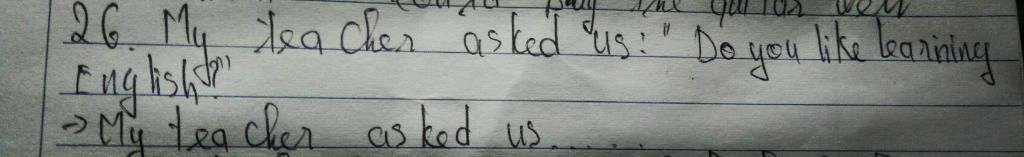 26. My teacher asked us: "Do you like learining
English?"
→ My teacher asked us.......